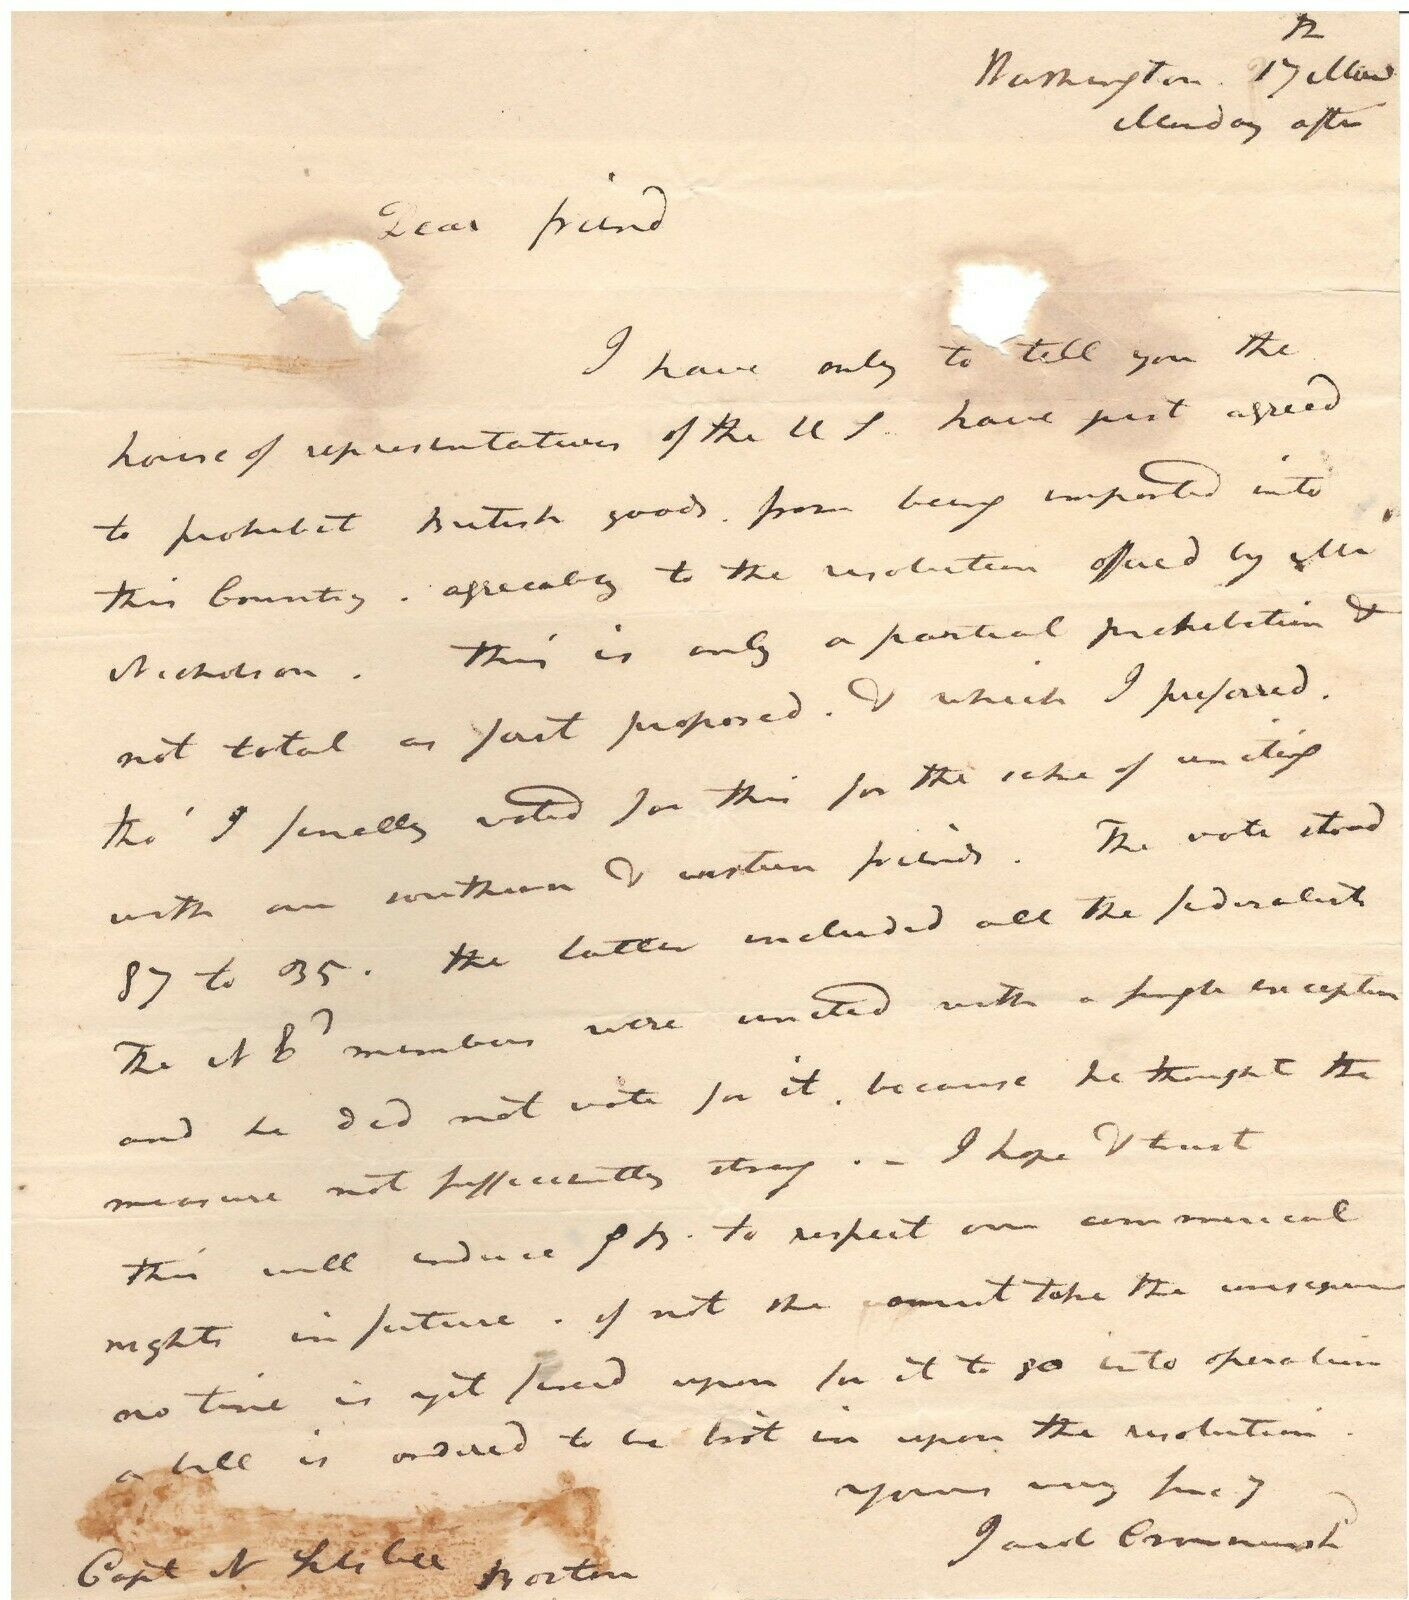 Washington 17 Mar
Monday after
Dear friend
I have only to tell you the
house of representatives of the U S. have just agreed
to prohibit British goods. from being imported into
this Country. agreeably to the resolution offered by Mr
Nicholson. this is only a partial prohibition &
not total as first proposed. & which I preferred.
tho' I finally voted for this for the sake of uniting
with our southern & western friends. The vote stood
87 to 35. the latter included all the federalists
The N Ed members were united with a single exception
and he did not vote for it, because he thought the
measure not sufficiently strong. - I hope & trust
this will induce G B. to respect our commercial
rights in future. if not she must take the consequen
no time is yet fixed upon for it to go into operation
a bill is ordered to be brot in upon the resolution.
yours very
Jacob Crowninshd
Capt N Boston